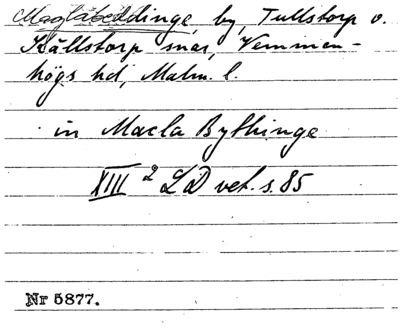 Maglabeddinge, by, Tullstorp o.
Källstorp snar, Vemmen-
högs hd, Malm. l.
in Macla Bythinge
XIII 2 LD vet. s. 85
Nr 5877.